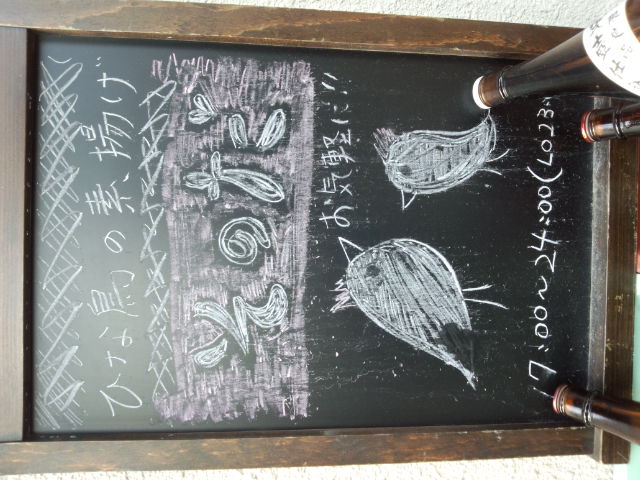 ひな鳥の素揚げ
そのだ
お気軽に!!
7:00~24:00(LO23: